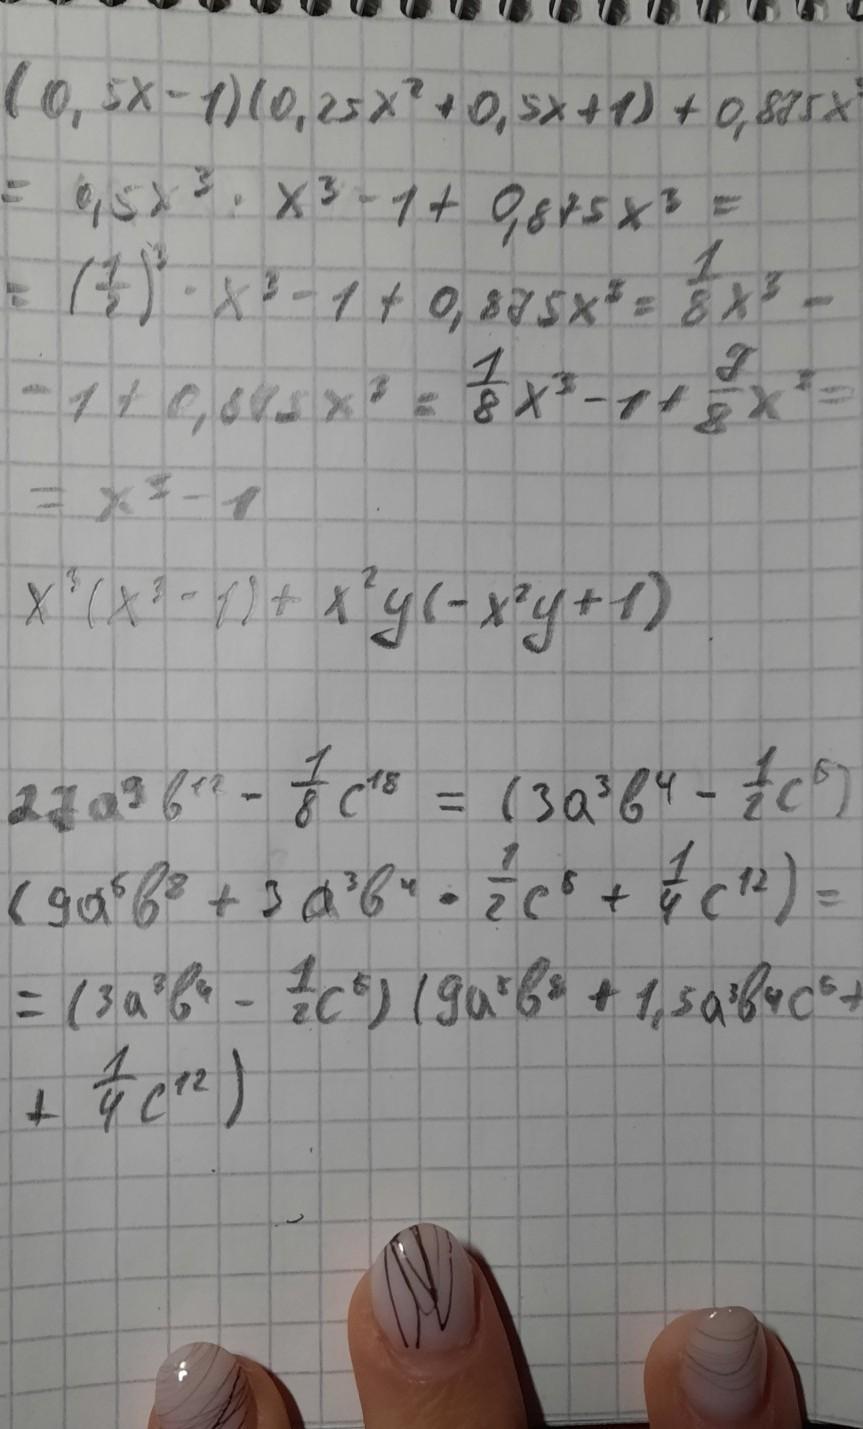 (0,5x-1)(0,25x²+0,5x+1)+0,875x³
= 0,5x³·x³-1+0,875x³=
=(1/2)³·x³-1+0,875x³=1/8x³-
-1+0,875x³=1/8x³-1+7/8x³=
=x³-1
x³(x³-1)+x²y(-x²y+1)
27a⁹b¹²-1/8c¹⁸=(3a³b⁴-1/2c⁶)
(9a⁶b⁸+3a³b⁴·1/2c⁶+1/4c¹²)=
=(3a³b⁴-1/2c⁶)(9a⁶b⁸+1,5a³b⁴c⁶+
+1/4c¹²)